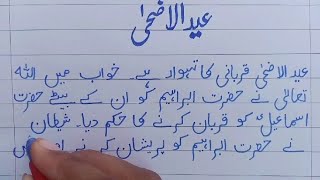 عید الاضحیٰ
عید الاضحیٰ قربانی کا تہوار ہے۔ خواب میں اللہ
تعالیٰ نے حضرت ابراہیم کو ان کے بیٹے حضرت
اسماعیلؑ کو قربان کرنے کا حکم دیا۔ شیطان
نے حضرت ابراہیم کو پریشان کرنے